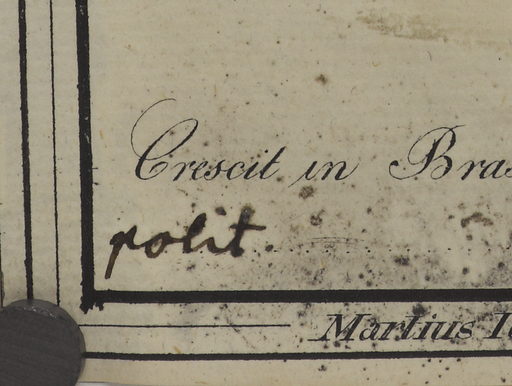 Crescit in Bras
polit.
Martius